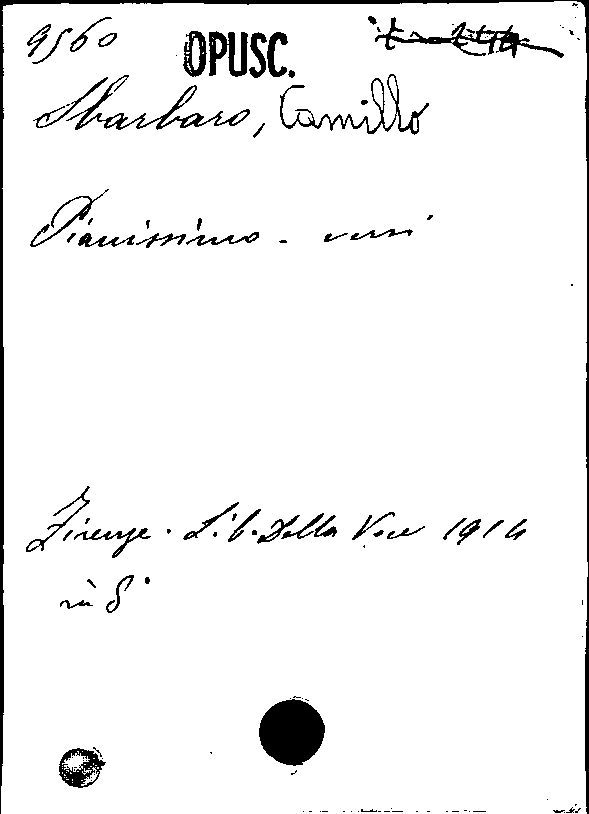 9560 OPUSC.
Sbarbaro, Camillo
Pianissimo - versi
Firenze. Lib. Della Voce 1914
in 8°